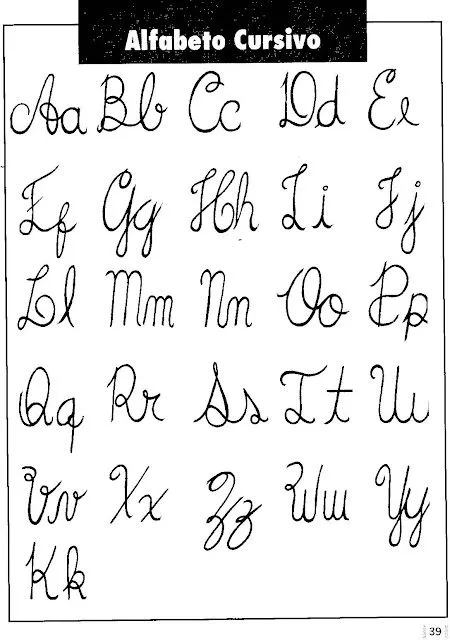 Alfabeto Cursivo
Aa Bb Cc Dd Ee
Ff Gg Hh Ii Jj
Ll Mm Nn Oo Pp
Qq Rr Ss Tt Uu
Vv Xx Zz Ww Yy
Kk
39